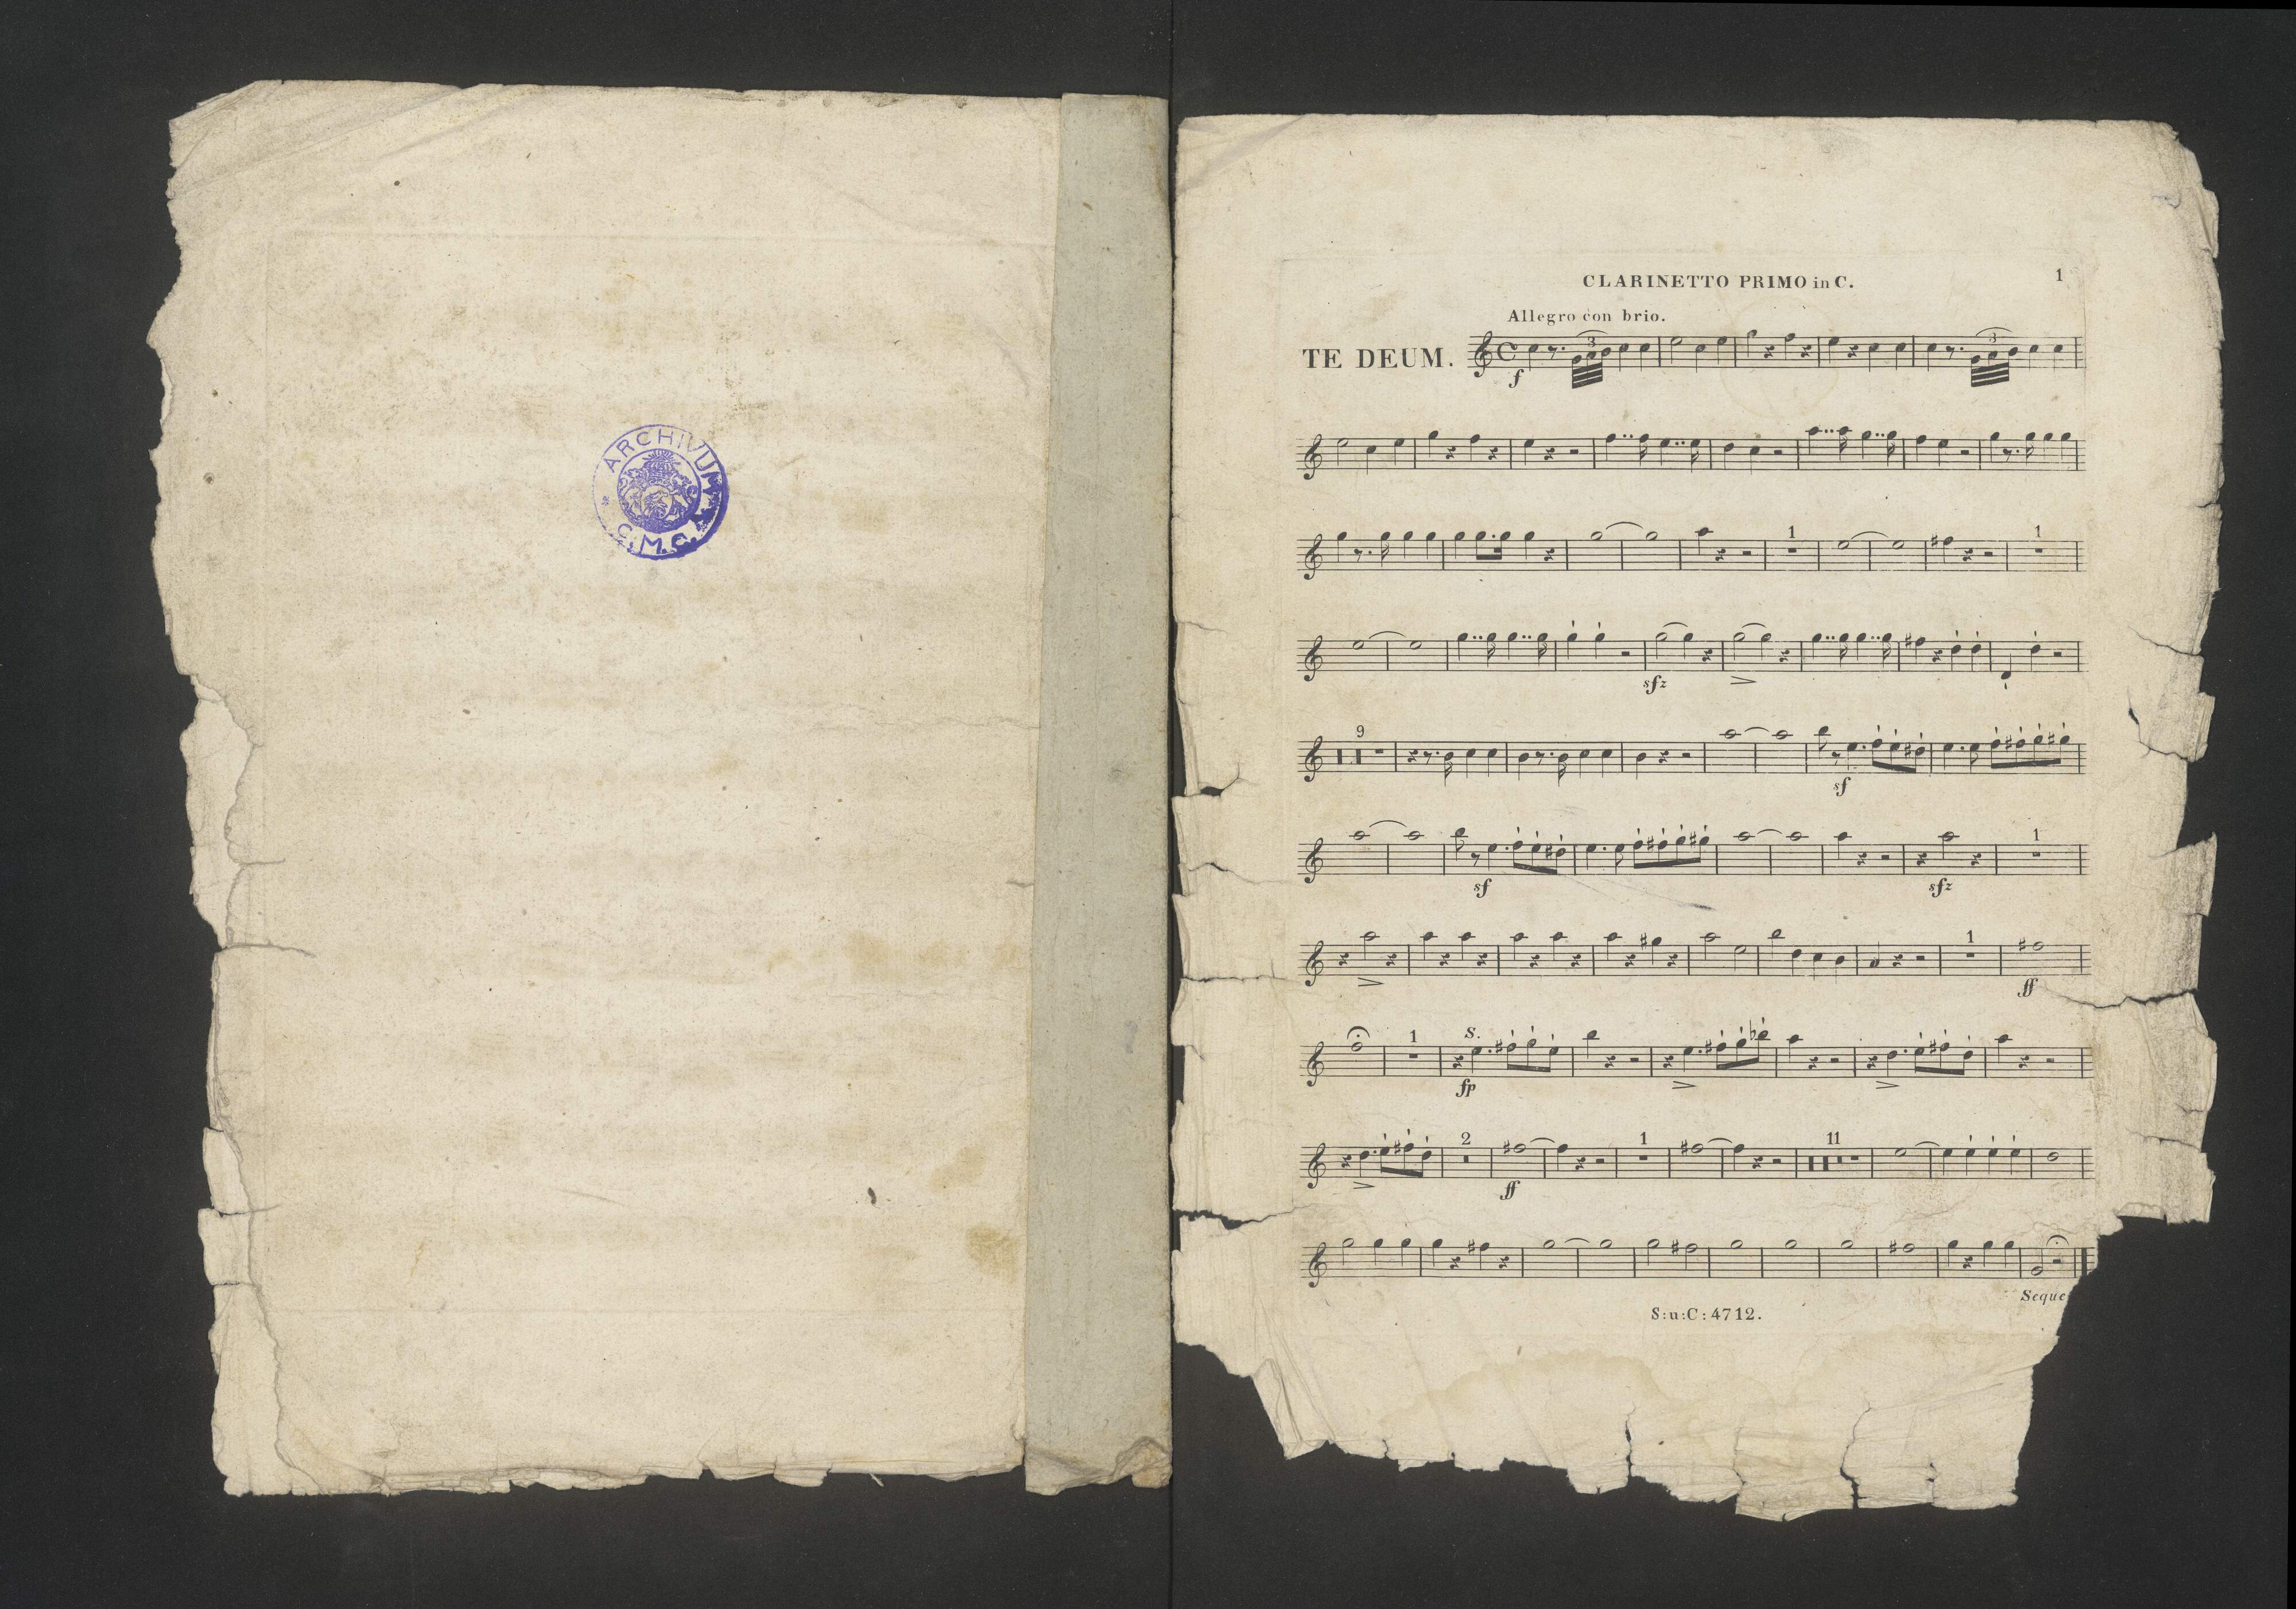 ARCHIVUM
C.M.C.
CLARINETTO PRIMO in C.
1
Allegro con brio.
TE DEUM.
3
3
f
1
1
sfz
9
sf
1
sf
sfz
1
ff
1
S.
fp
2
1
11
ff
Seque
S:u:C:4712.